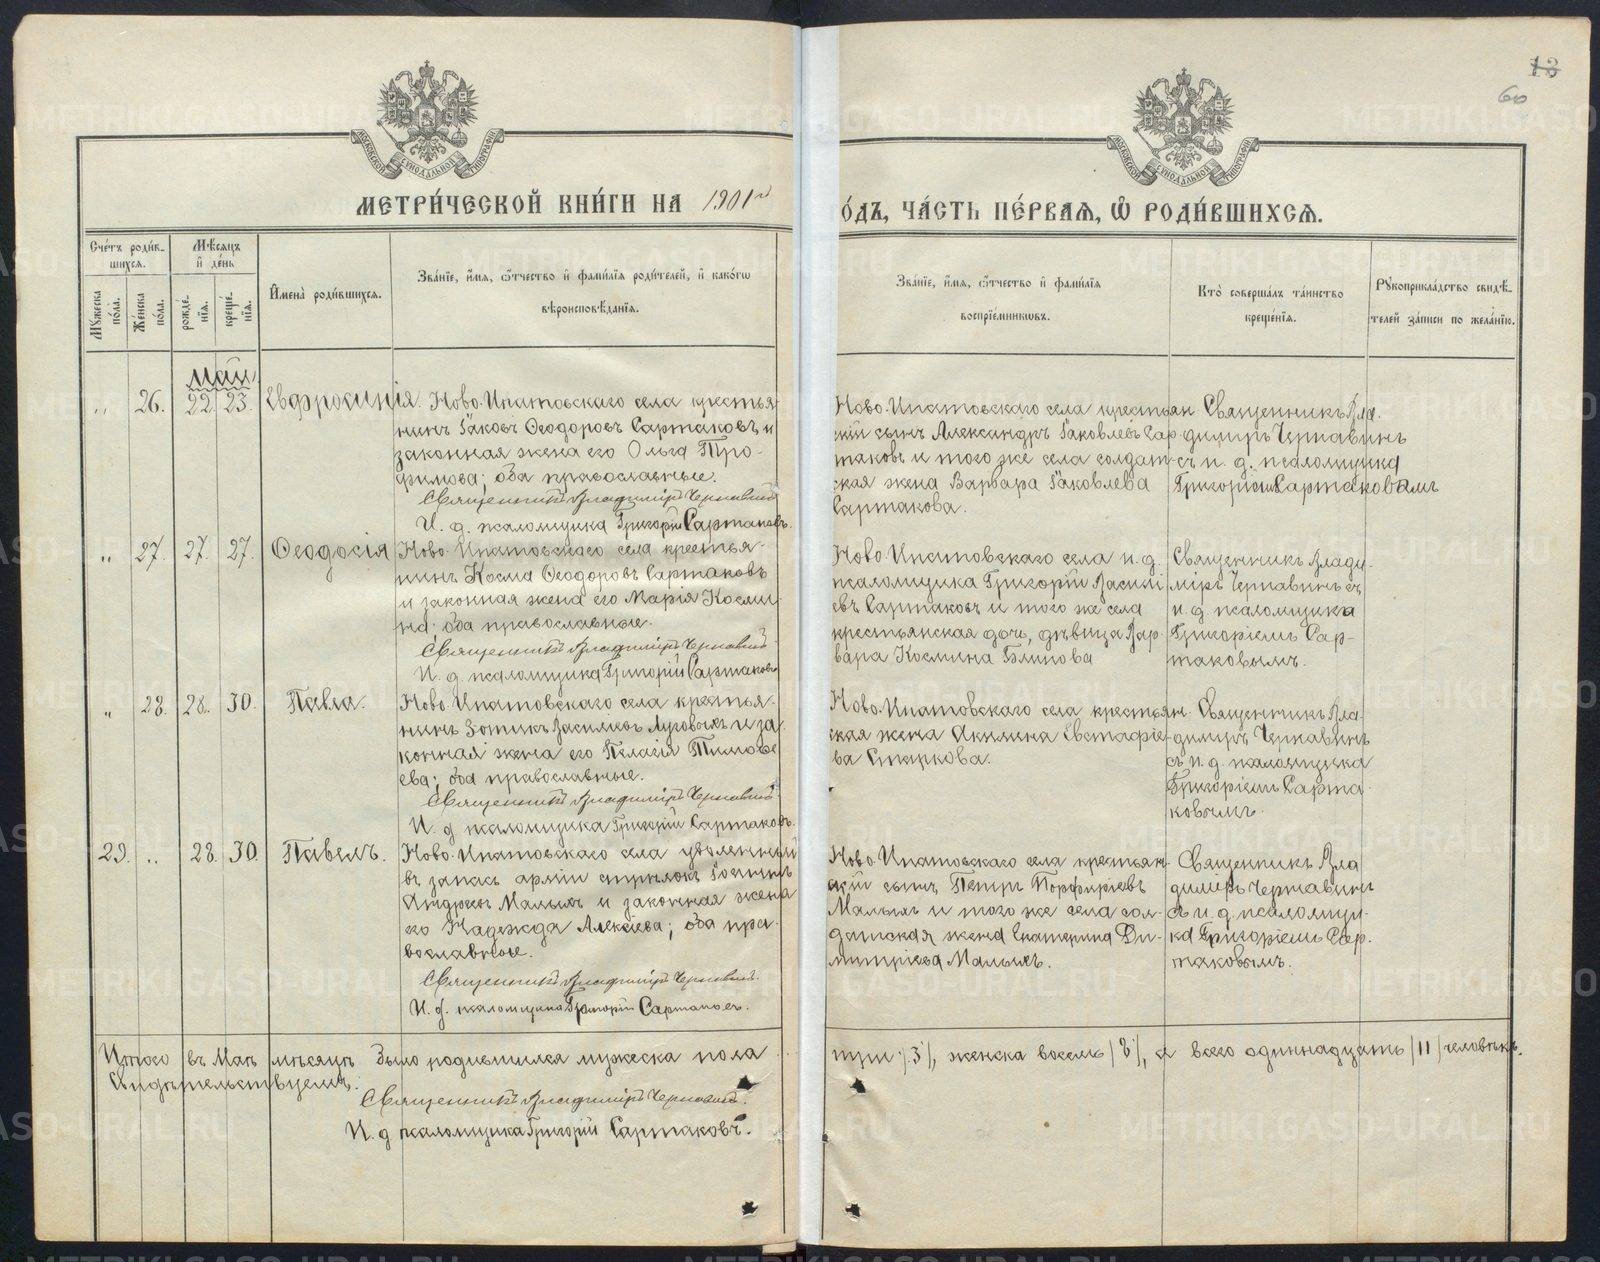 13
60
МОСКОВСКОЙ СѴНОДАЛЬНОЙ ТИПОГРАФІИ
МОСКОВСКОЙ СѴНОДАЛЬНОЙ ТИПОГРАФІИ
МЕТРИ́ЧЕСКОЙ КНИ́ГИ НА 1901й
О́ДЪ, ЧА́СТЬ ПЕ́РВАЯ, Ѽ РОДИ́ВШИХСЯ.
Сче́тъ роди́в-
шихся.
Мꙋжеска по́ла.
Же́нска по́ла.
Мѣ́сяцъ
и҆ де́нь
рожде́-
нїя.
креще́-
нїя.
И҆мена̀ роди́вшихся.
Зва́нїе, и҆́мя, ѻ҆́тчество и҆ фами́лїя роди́телей, и҆ како́гѡ
вѣроисповѣ́данїя.
Зва́нїе, и҆́мя, ѻ҆́тчество и҆ фами́лїя
воспрїе́мникѡвъ.
Кто̀ соверша́лъ та́инство
креще́нїя.
Рꙋкоприкла́дство свидѣ́-
телей за́писи по жела́нїю.
Май
„ 26. 22. 23. Евфросинія. Ново-Ипатовскаго села крестья-
нинъ Іаковъ Ѳеодоровъ Сартаковъ и
законная жена его Ольга Тро-
фимова; оба православные.
Священникъ Владиміръ Чернавинъ
И. д. псаломщика Григорій Сартаковъ.
Ново-Ипатовскаго села крестьян
скій сынъ Александръ Іаковлевъ Сар-
таковъ и того же села солдат-
ская жена Варвара Іаковлева
Сартакова.
Священникъ Вла-
димиръ Чернавинъ
съ и. д. псаломщика
Григоріемъ Сартаковымъ
„ 27. 27. 27. Ѳеодосія Ново-Ипатовскаго села крестья-
нинъ Косма Ѳеодоровъ Сартаковъ
и законная жена его Марія Косми-
на; оба православные.
Священникъ Владиміръ Чернавинъ
И. д. псаломщика Григорій Сартаковъ
Ново-Ипатовскаго села и. д.
псаломщика Григорій Василі
евъ Сартаковъ и того же села
крестьянская дочь, дѣвица Вар-
вара Космина Блинова
Священникъ Влади-
міръ Чернавинъ съ
и. д. псаломщика
Григоріемъ Сар-
таковымъ.
„ 28. 28. 30. Павла. Ново-Ипатовскаго села крестья-
нинъ Зотикъ Васильевъ Луговыхъ и за-
конная жена его Пелагія Тимоѳе
ева; оба православные.
Священникъ Владиміръ Чернавинъ
И. д. псаломщика Григорій Сартаковъ.
Ново-Ипатовскаго села крестьян-
ская жена Акилина Евстафіе-
ва Старкова.
Священникъ Вла-
димиръ Чернавинъ
съ и. д. псаломщика
Григоріемъ Сарта-
ковымъ.
29. „ 28. 30. Павелъ. Ново-Ипатовскаго села уволенный
въ запасъ арміи стрѣлокъ
Андреевъ Малыхъ и законная жена
его Надежда Алексіева; оба пра-
вославные.
Священникъ Владиміръ Чернавинъ.
И. д. псаломщика Григорій Сартаковъ.
Ново-Ипатовскаго села крестьян-
скій сынъ Петръ Порфиріевъ
Малыхъ и того же села сол-
датская жена Екатерина Ди-
митріева Малыхъ.
Священникъ Вла
димиръ Чернавинъ
съ и. д. псаломщи-
ка Григоріемъ Сар-
таковымъ.
Итого въ Маѣ мѣсяцѣ было родившихся мужеска пола три /3/, женска восемь /8/, а всего одиннадцать /11/ человѣкъ.
Свидѣтельствуемъ:
Священникъ Владиміръ Чернавинъ.
И. д. псаломщика Григорій Сартаковъ.
METRIKI.GASO-URAL.RU